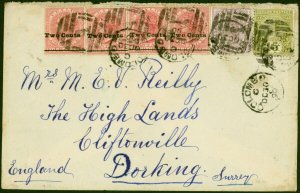 Two Cents Two Cents Two Cents Two Cents
Mrs M. E. V. Reilly
The High Lands
Cliftonville
England Dorking. Surrey